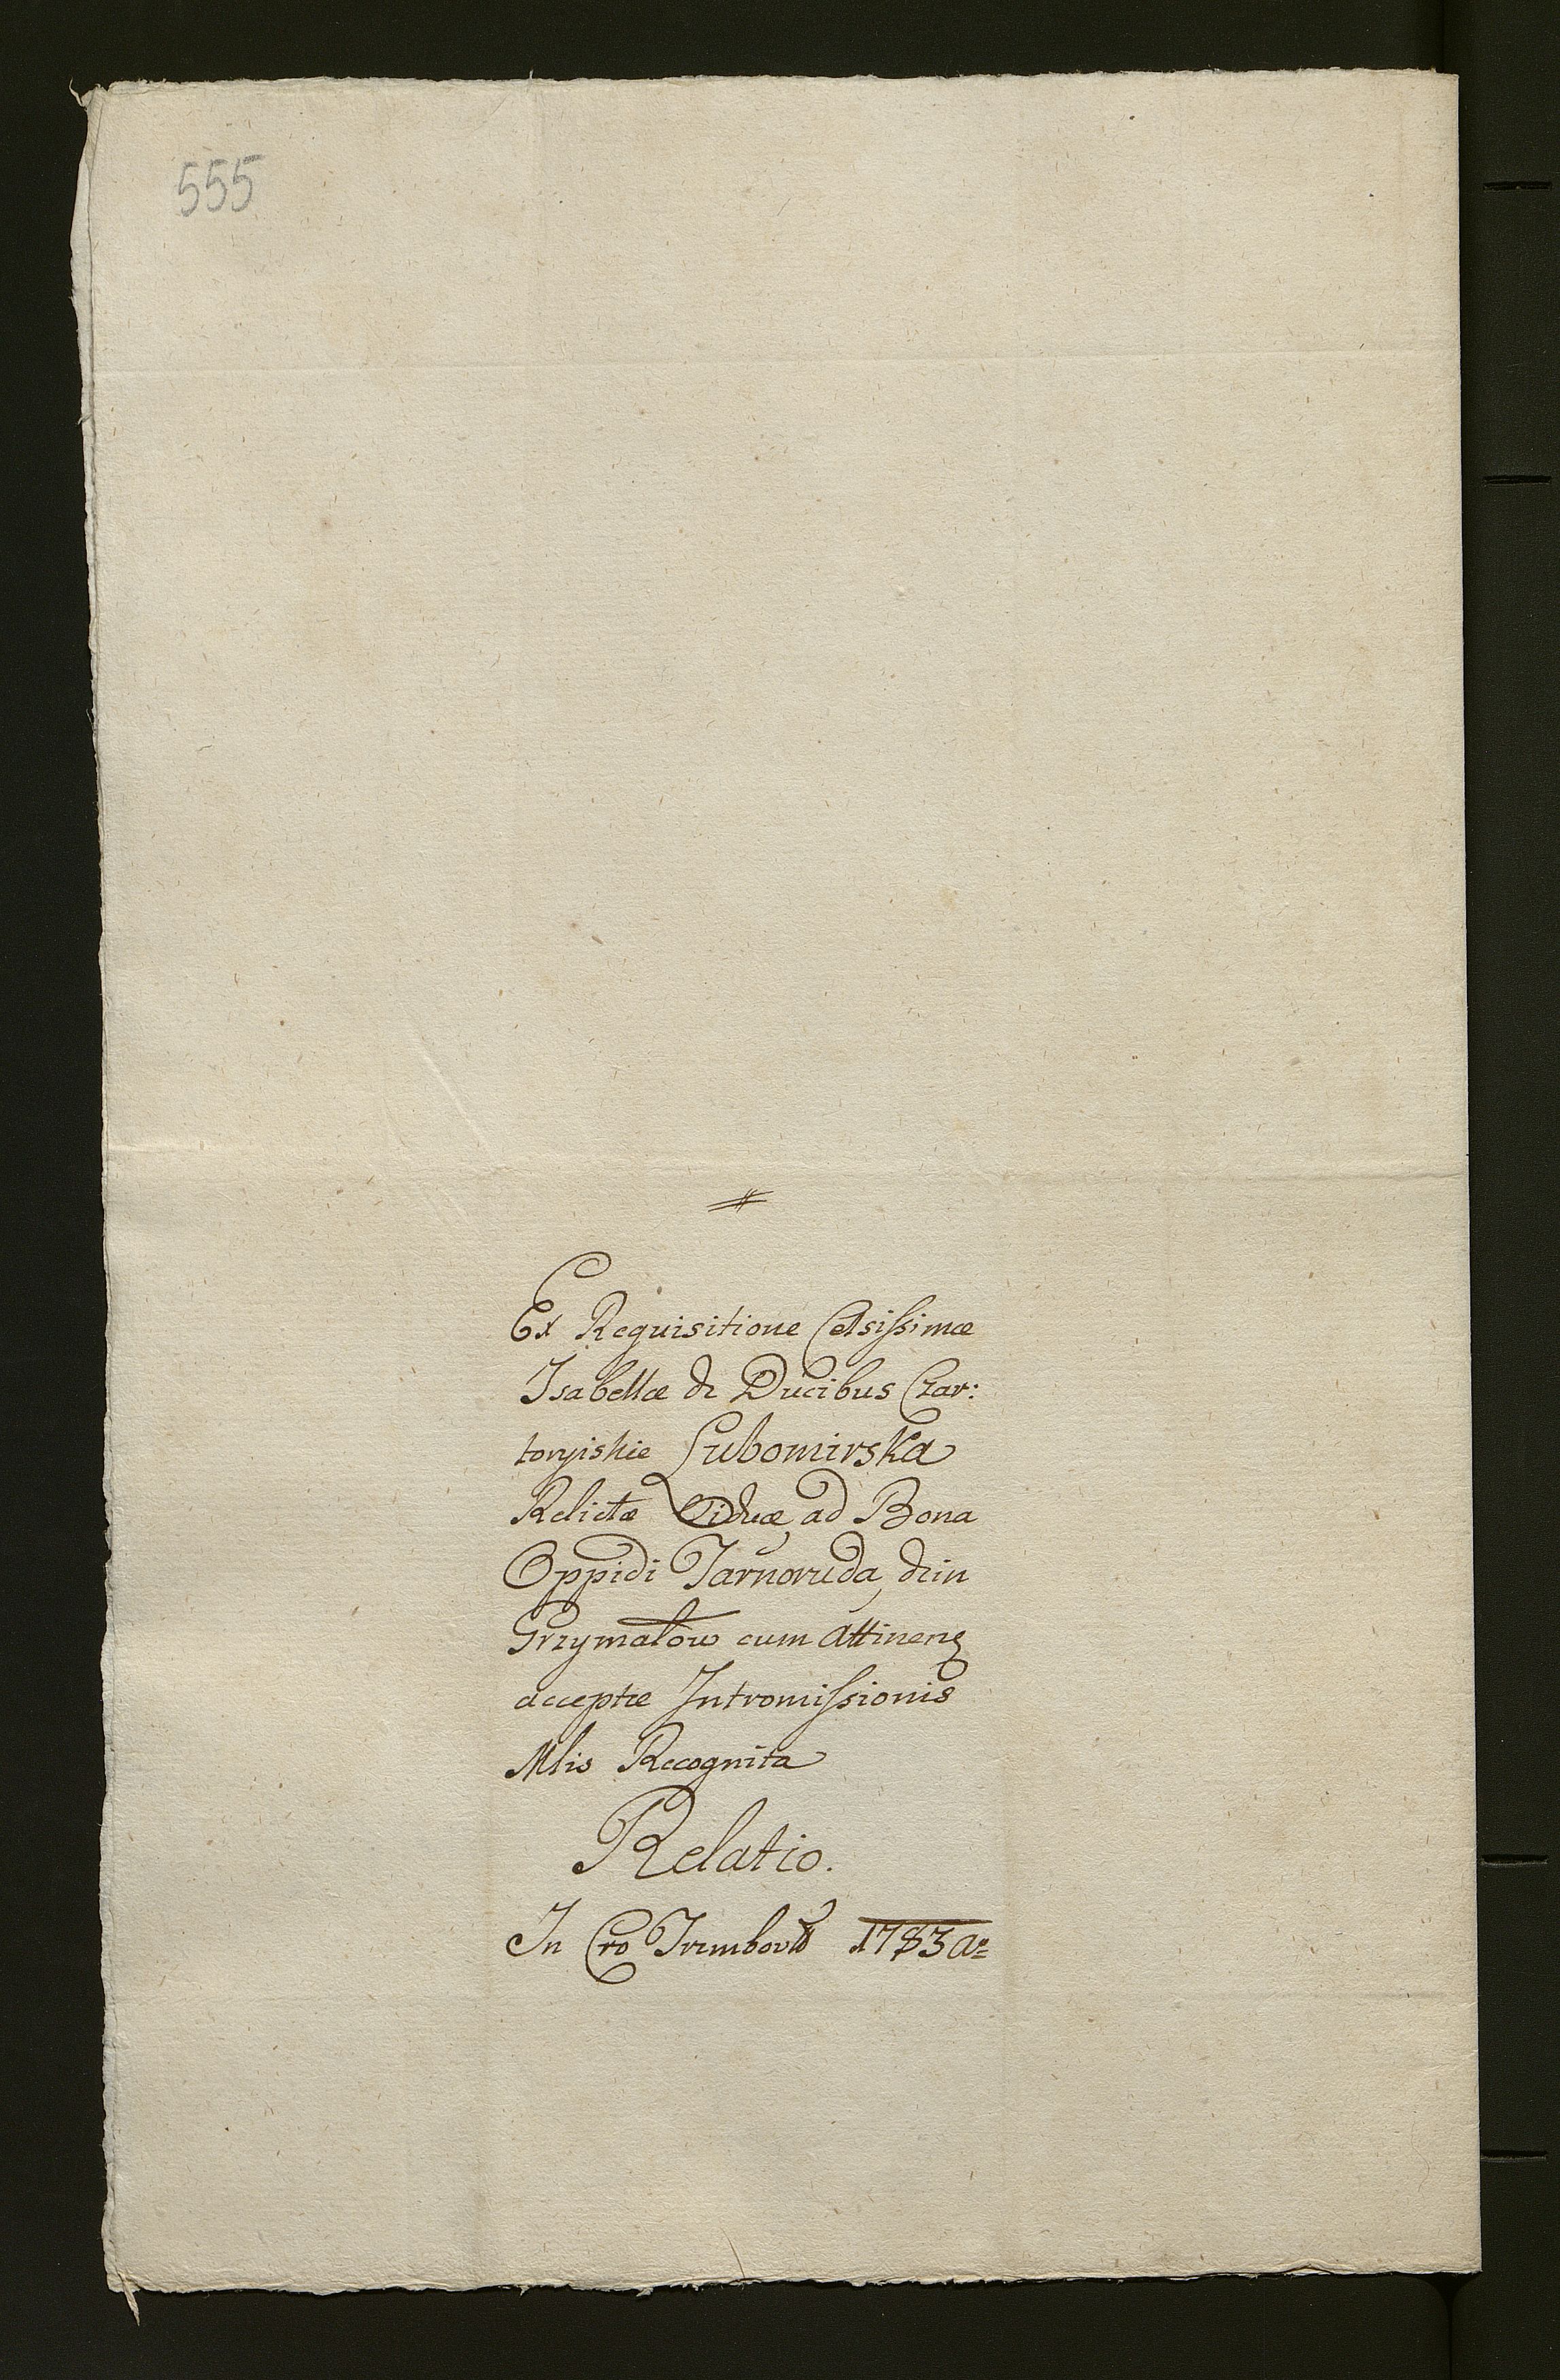 555
Ex Requisitione Celsissimæ
Isabellæ de Ducibus Czar:
toryiskie Lubomirska
Relictæ Viduæ ad Bona
Oppidi Tarnoruda, dein
Grzymałow cum Attinen
acceptæ Intromissionis
Mlis Recognita
Relatio.
In Cro Trembovld 1783 Ao